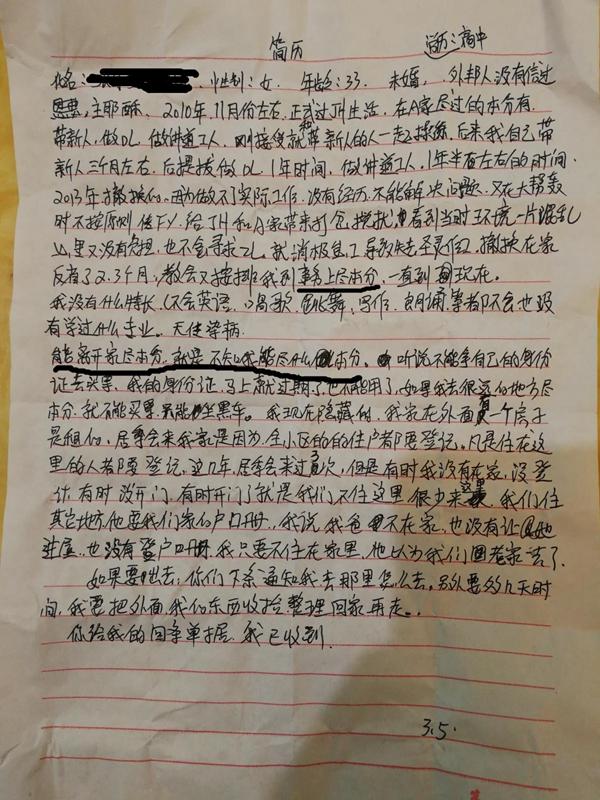 简历 学历：高中
姓名： 性别：女 年龄：33 未婚，外邦人没有信过
恩典，主耶稣，2010年，11月份左右，正式过JH生活，在A家尽过的本分有，
带新人，做DL，做讲道工人，刚接受就带新人的人一起操练，后来我自己带
新人三个月左右，后提拔做DL，1年时间，做讲道工人，1年半左右的时间．
2013年撤换的，因为做不了实际工作，没有经历，不能解决问题，又在大帮轰
时不按原则传FY，给JH和A家带来打岔搅扰，看到当时环境一片混乱
心里又没有负担，也不会寻求ZL，就消极怠工导致失去圣灵作工，撤换在家
反省了2.3个月，教会又安排我到事务上尽本分，一直到现在。
我没有什么特长，（不会英语，唱歌，跳舞，写作，朗诵等都不会也没
有学过什么专业。天住染病
能离开家尽本分，就是不知我能尽什么本分，听说不能拿自己的身份
证去买票，我的身份证，马上就过期了也不能用了，如果我去很远的地方尽
本分，就不能买票，只能坐黑车。我现在隐藏的，我家在外面有一个房子
是租的，居委会来我家是因为，全小区的的住户都要登记，凡是住在这
里的人都要登记，这几年，居委会来过3次，但是有时我没有在家，没登
记有时没开门，有时开门了就是我们不住这里很少来这里，我们住
其它地方他要我们家的户口册，我说，我爸不在家，也没有让他
进屋，也没有登户口册，我只要不住在家里，他以为我们回老家去了。
如果要出去，你们下条通知我去那里怎么去，另外要约几天时
间，我要把外面我们东西收拾，整理回家再走。
你给我的回条单据，我已收到
3.5.